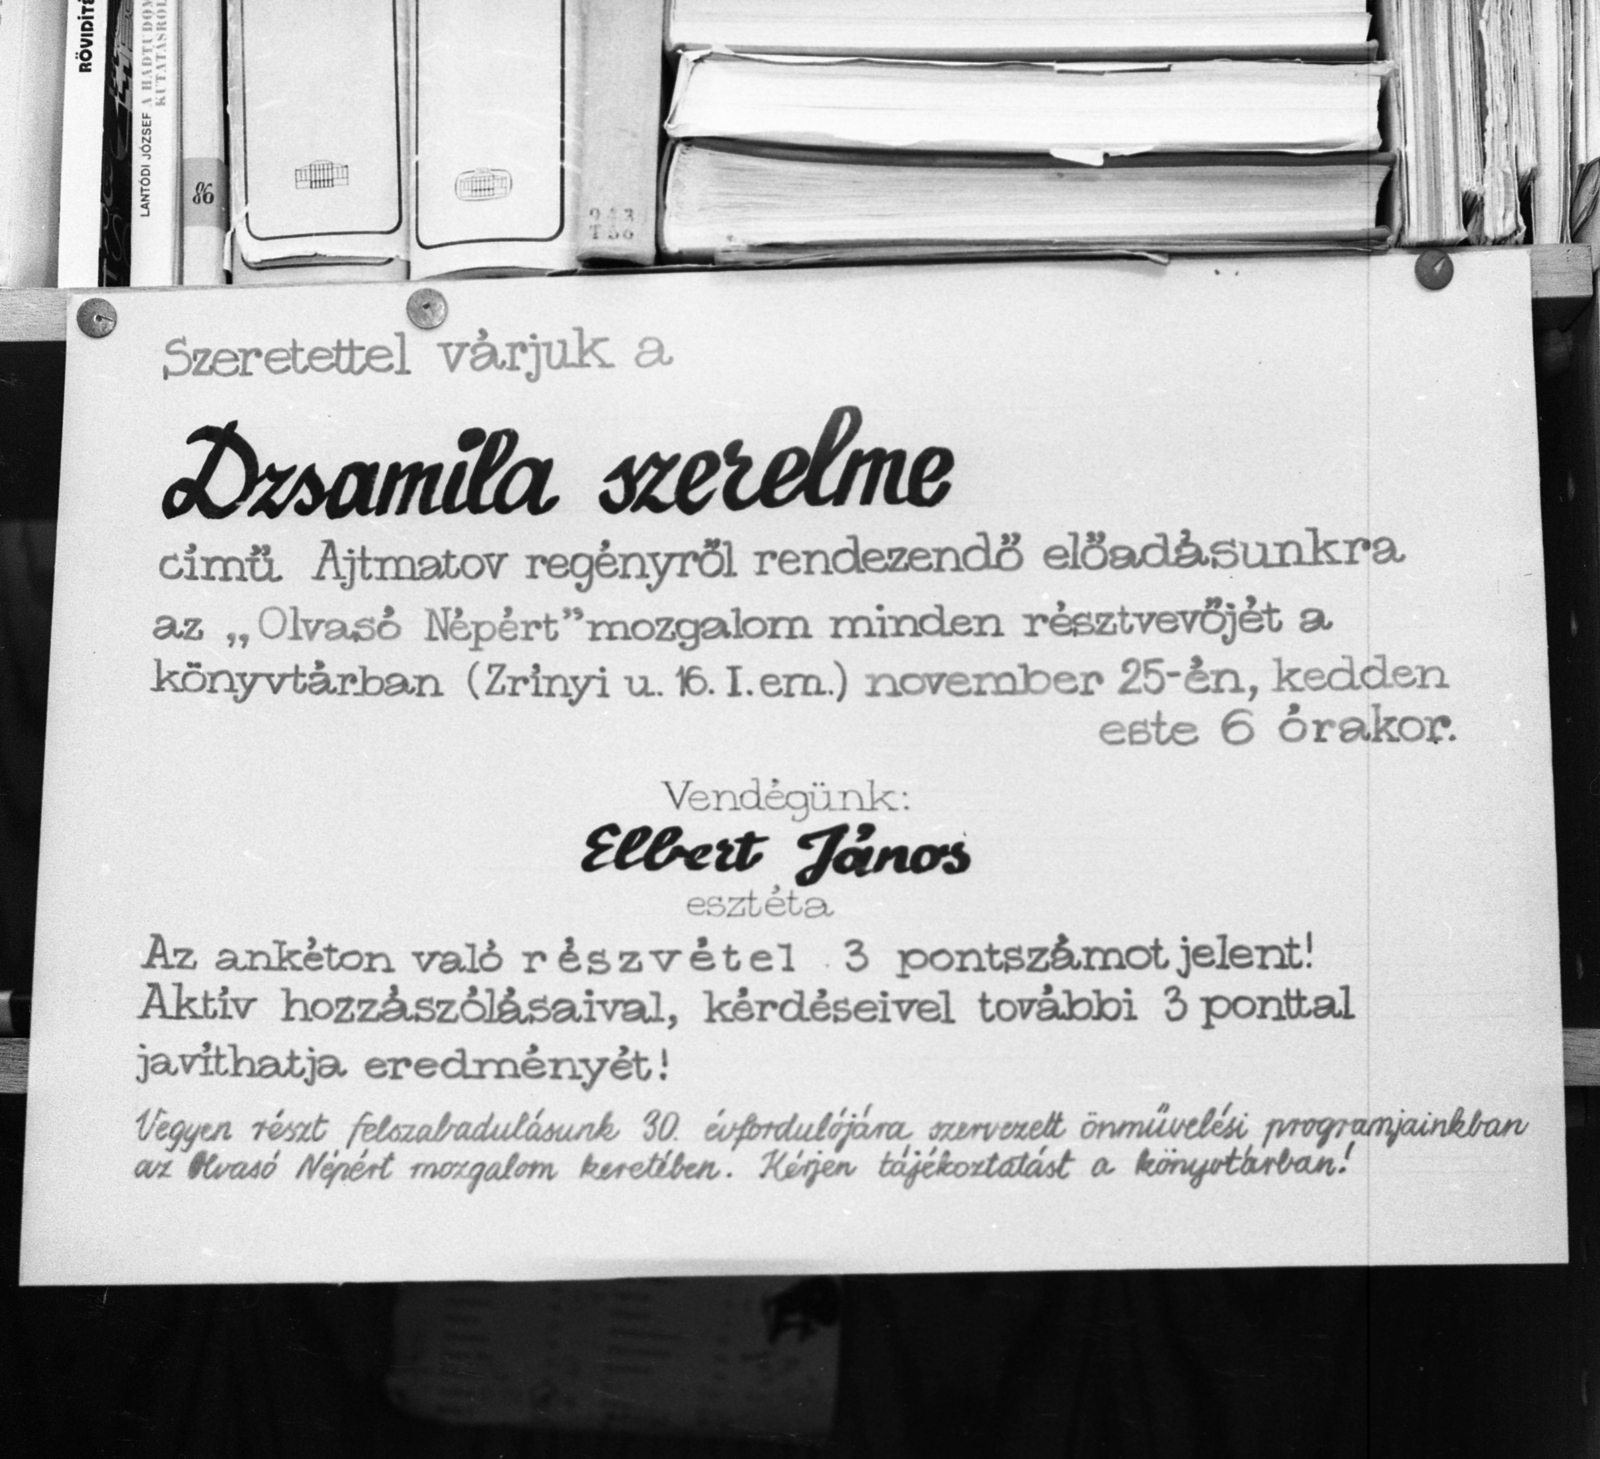 RÖVIDÍTÉ
LANTÓDI JÓZSEF A HADTUDOM
KUTATÁSRÓL
86
943
T56
Szeretettel várjuk a
Dzsamila szerelme
című Ajtmatov regényről rendezendő előadásunkra
az „Olvasó Népért” mozgalom minden résztvevőjét a
könyvtárban (Zrínyi u. 16. I. em.) november 25-én, kedden
este 6 órakor.
Vendégünk:
Elbert János
esztéta
Az ankéton való részvétel 3 pontszámot jelent!
Aktív hozzászólásaival, kérdéseivel további 3 ponttal
javíthatja eredményét!
Vegyen részt felszabadulásunk 30. évfordulójára szervezett önművelési programjainkban
az Olvasó Népért mozgalom keretében. Kérjen tájékoztatást a könyvtárban!